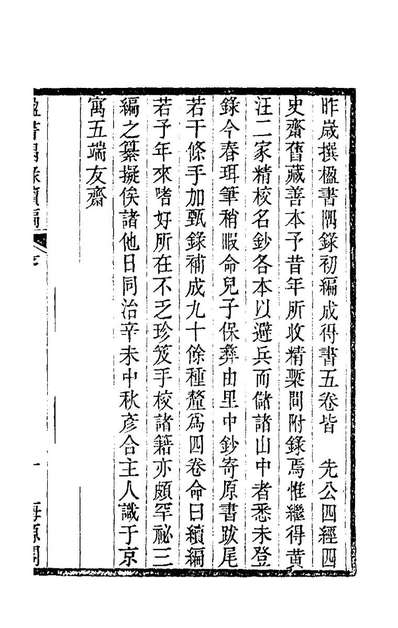 昨歲撰楹書隅錄初編成得書五卷皆　先公四經四
史齋舊藏善本予昔年所收精槧間附錄焉惟繼得黃
汪二家精校名鈔各本以避兵而儲諸山中者悉未登
錄今春珥筆稍暇命兒子保彝由里中鈔寄原書跋尾
若干條手加甄錄補成九十餘種釐爲四卷命曰續編
若予年來嗜好所在不乏珍笈手校諸籍亦頗罕祕三
編之纂擬俟諸他日同治辛未中秋彥合主人識于京
寓五端友齋
楹書隅錄續編
序
一
海源閣